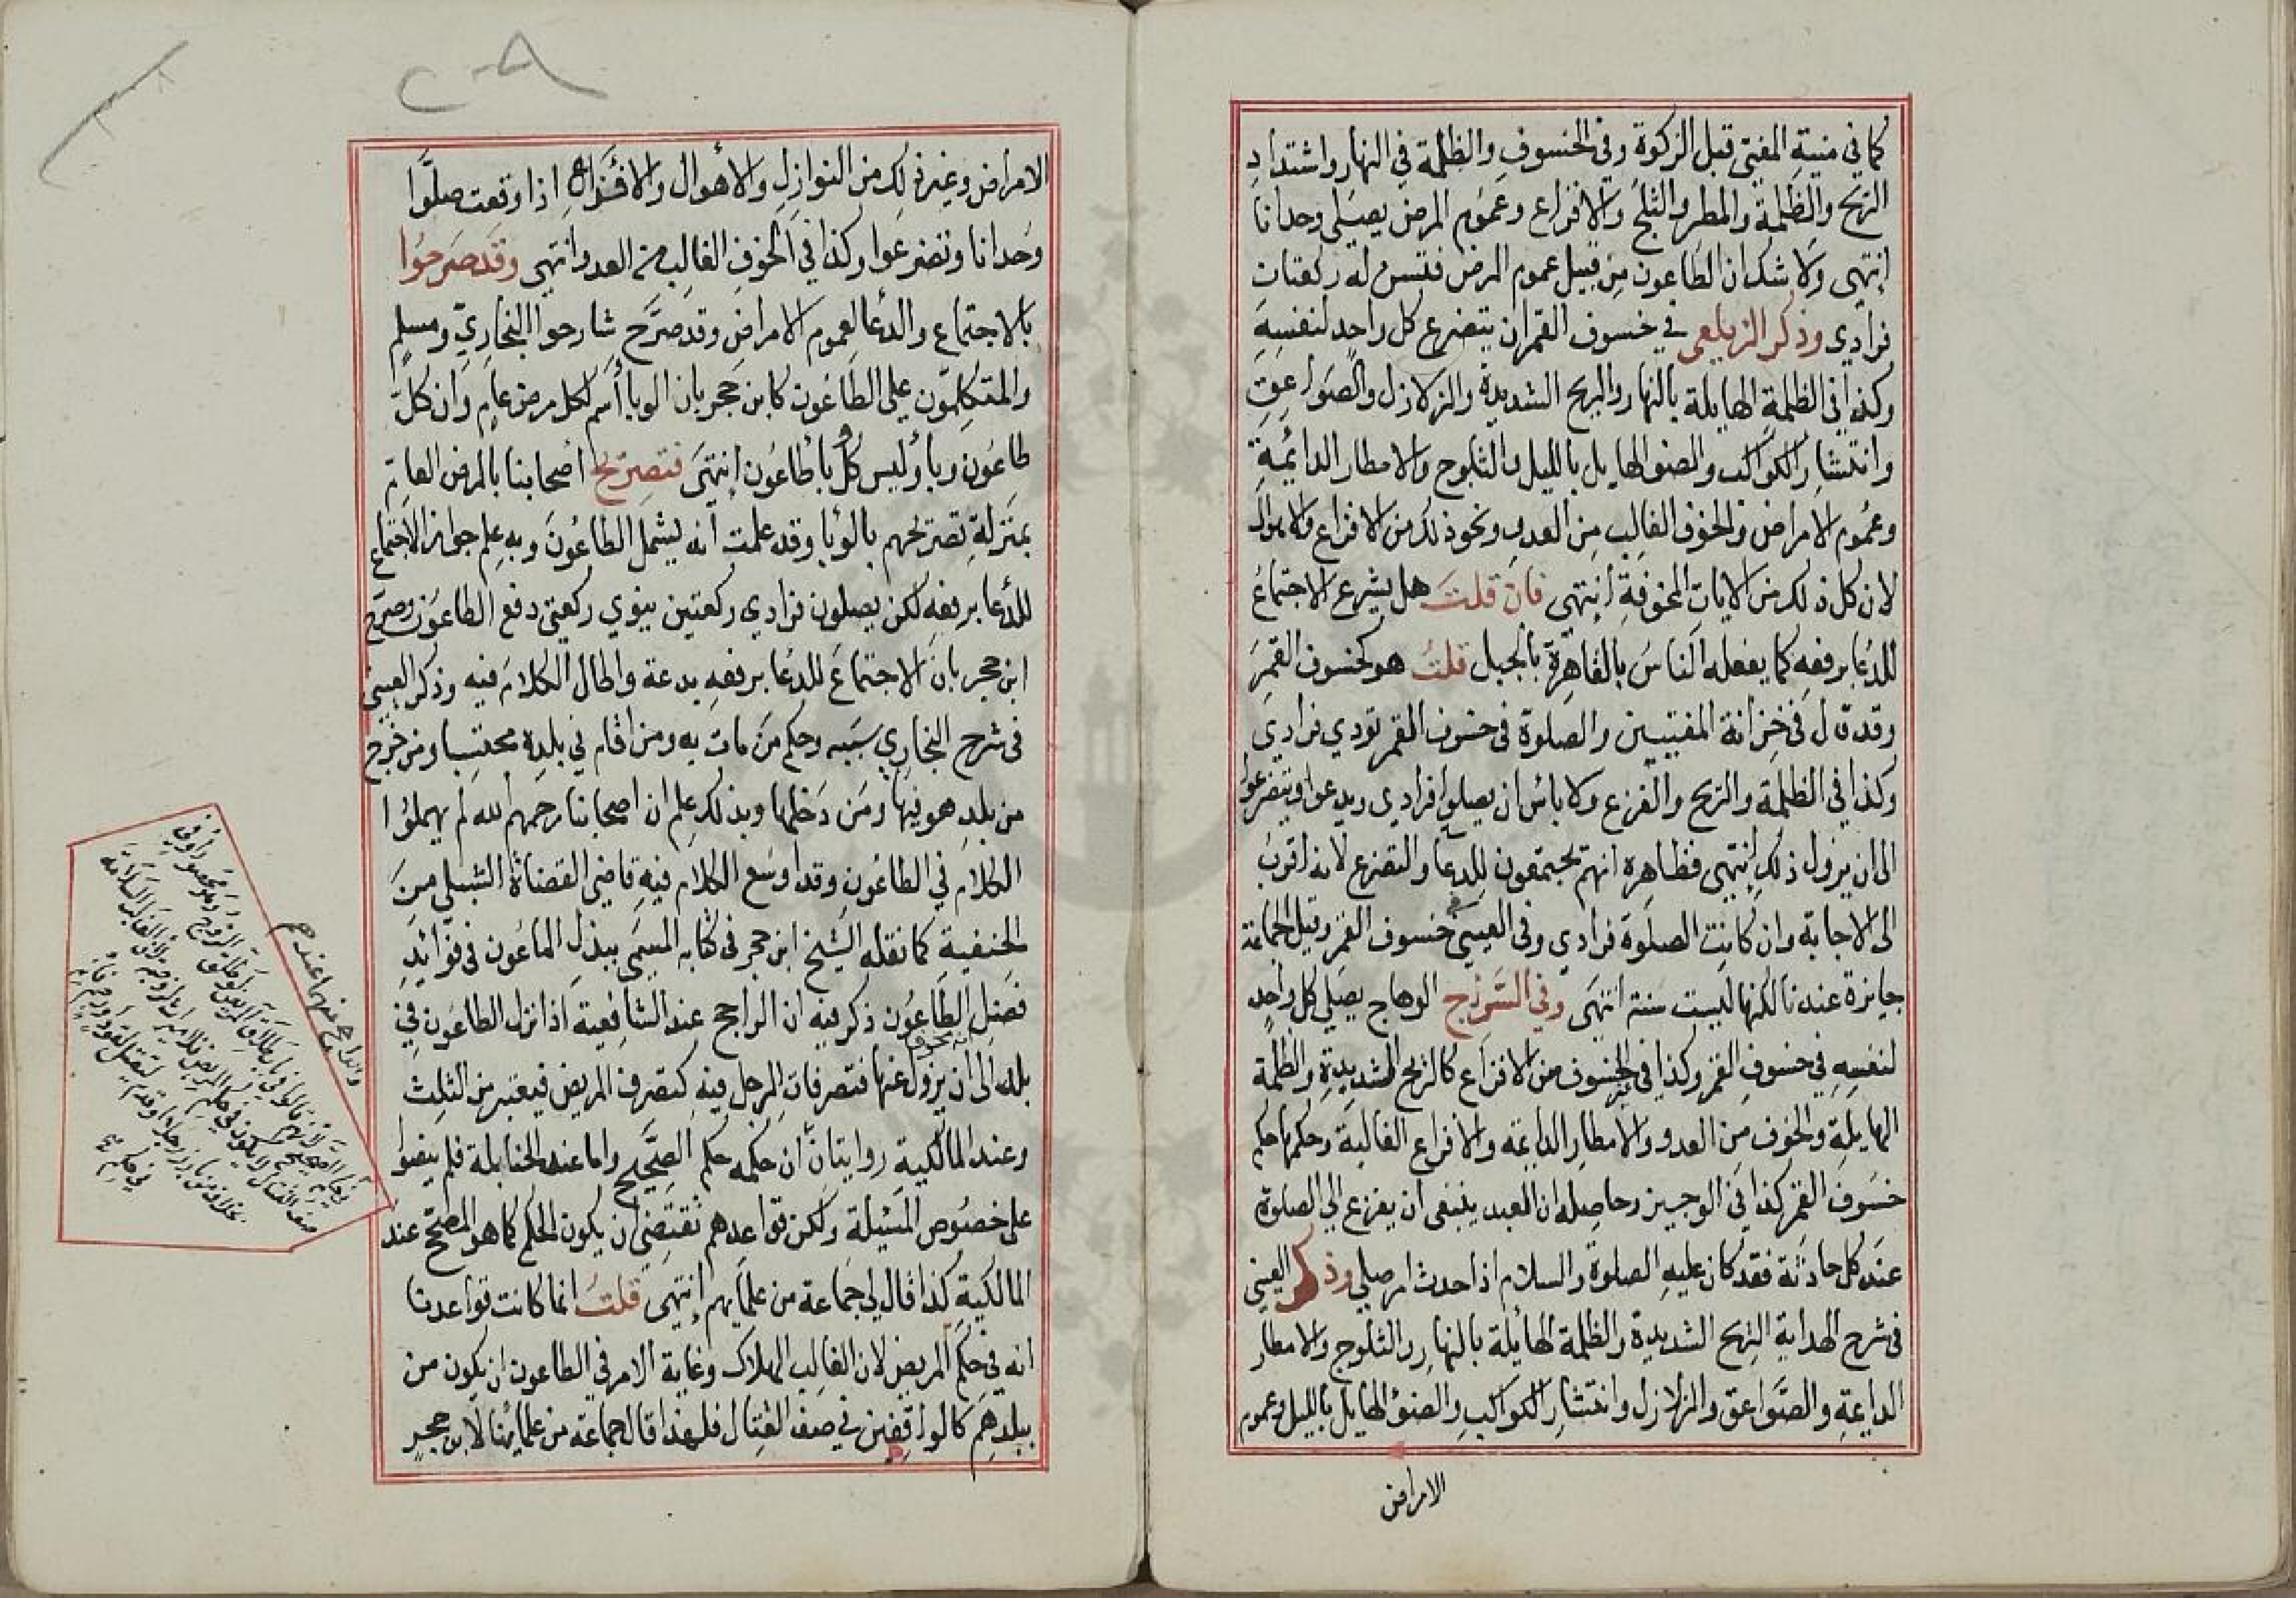 كما في منية المفتي قبل الزكوة وفي الخسوف والظلمة في النهار واشتداد
الريح والظلمة والمطر والثلج والافزاع وعموم المرض يصلي وحدانا
انتهى ولا شك ان الطاعون من قبيل عموم المرض فتسن له ركعتان
فرادي وذكر الزيلعي في خسوف القمر ان يتضرع كل واحد لنفسه
وكذا في الظلمة الهايلة بالنهار والريح الشديدة والزلازل والصواعق
وانتشار الكواكب والضو الهايل بالليل والثلوج والامطار الدائمة
وعموم الامراض والخوف الغالب من العدو ونحو ذلك من الافزاع والاهوال
لان كل ذلك من الايات المخوفة انتهى فان قلت هل يشرع الاجتماع
للدعا برفعه كما يفعله الناس بالقاهرة بالجبل قلت هو كخسوف القمر
وقد قال في خزانة المفتيين والصلوة في خسوف القمر تودي فرادي
وكذا في الظلمة والريح والفزع ولا باس ان يصلوا فرادي ويدعوا ويتضرعوا
الى ان يزول ذلك انتهى فظاهره انهم يجتمعون للدعا والتضرع لانه اقرب
الى الاجابة وان كانت الصلوة فرادي وفي العيني في خسوف القمر وقيل الجماعة
جايزة عندنا لكنها ليست سنة انتهى وفي السراج الوهاج يصلي كل واحد
لنفسه في خسوف القمر وكذا في غير الخسوف من الافزاع كالريح الشديدة والظلمة
الهايلة والخوف من العدو والامطار الدايمة والافزاع الغالبة وحكمها حكم
خسوف القمر كذا في الوجيز وحاصله ان العبد ينبغي ان يفزع الي الصلوة
عند كل حادثة فقد كان عليه الصلوة والسلام اذا حدث امر صلي وذكر العيني
في شرح الهداية الريح الشديدة والظلمة الهائلة بالنهار والثلوج والامطار
الدايمة والصواعق والزلازل وانتشار الكواكب والضوء الهايل بالليل وعموم
الامراض
الامراض وغير ذلك من النوازل والاهوال والافزاع اذا وقعت صلوا
وحدانا وتضرعوا وكذا في الخوف الغالب من العدو انتهى وقد صرحوا
بالاجتماع والدعا لعموم الامراض وقد صرح شارحوا البخاري ومسلم
والمتكلمون على الطاعون كابن حجر بان الوبا اسم لكل مرض عام وان كل
طاعون وبا وليس كل وبا طاعون انتهى فتصريح اصحابنا بالمرض العام
بمنزلة تصريحهم بالوبا وقد علمت انه يشمل الطاعون وبه علم جواز الاجتماع
للدعا برفعه لكن يصلون فرادي ركعتين ينوي ركعتي دفع الطاعون وصرح
ابن حجر بان الاجتماع للدعا برفعه بدعة واطال الكلام فيه وذكر العيني
في شرح البخاري سببه وحكم من مات به ومن اقام في بلده محتسبا ومن خرج
من بلد هو فيها ومن دخلها وبذلك علم ان اصحابنا رحمهم الله لم يهملوا
الكلام في الطاعون وقد اوسع الكلام فيه قاضي القضاة الشبلي من
الحنفية كما نقله الشيخ ابن حجر في كتابه المسمى ببذل الماعون في فوائد
فضل الطاعون ذكر فيه ان الراجح عند الشافعية اذا نزل الطاعون في
بلد الى ان يزول عنها فتصرفات الرجل فيه كتصرف المريض فيعتبر من الثلث
وعند المالكية روايتان ان حكمه حكم الصحيح واما عند الحنابلة فلم ينصوا
على خصوص المسئيلة ولكن قواعدهم تقتضي ان يكون الحكم كما هو المصحح عند
المالكية كذا قال لي جماعة من علمايهم انتهى قلت انما كانت قواعدنا
انه في حكم المريض لان الغالب الهلاك وغاية الامر في الطاعون ان يكون من
ببلدهم كالواقفين في صف القتال فلهذا قال جماعة من علمائنا لابن حجر
والراجح منهما عندهم